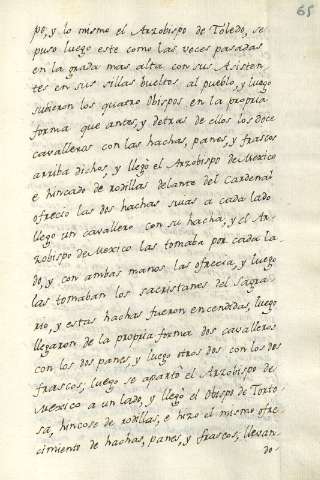 65
po, y lo mismo el Arzobispo de Toledo, se
puso luego este como las veces pasadas
en la grada mas alta con sus Asisten-
tes en sus sillas bueltos al pueblo, y luego
subieron los quatro Obispos en la propria
forma que antes, y detras de ellos los doce
cavalleros con las hachas, panes, y frascos
arriba dichos, y llegò el Arzobispo de Mexico
e hincado de rodillas delante del Cardenal
ofrecio las dos hachas suias a cada lado
llego un cavallero con su hacha, y el Ar-
zobispo de Mexico las tomaba por cada la-
do, y con ambas manos las ofrecia, y luego
las tomaban los sacristanes del Sagra-
rio, y estas hachas fueron encendidas, luego
llegaron de la propria forma dos cavalleros
con los dos panes, y luego otros dos con los dos
frascos, luego se apartó el Arzobispo de
Mexico a un lado, y llegó el Obispo de Torto-
sa, hincose de rodillas, e hizo el mismo ofre-
cimiento de hachas, panes, y frascos, llevan-
do-